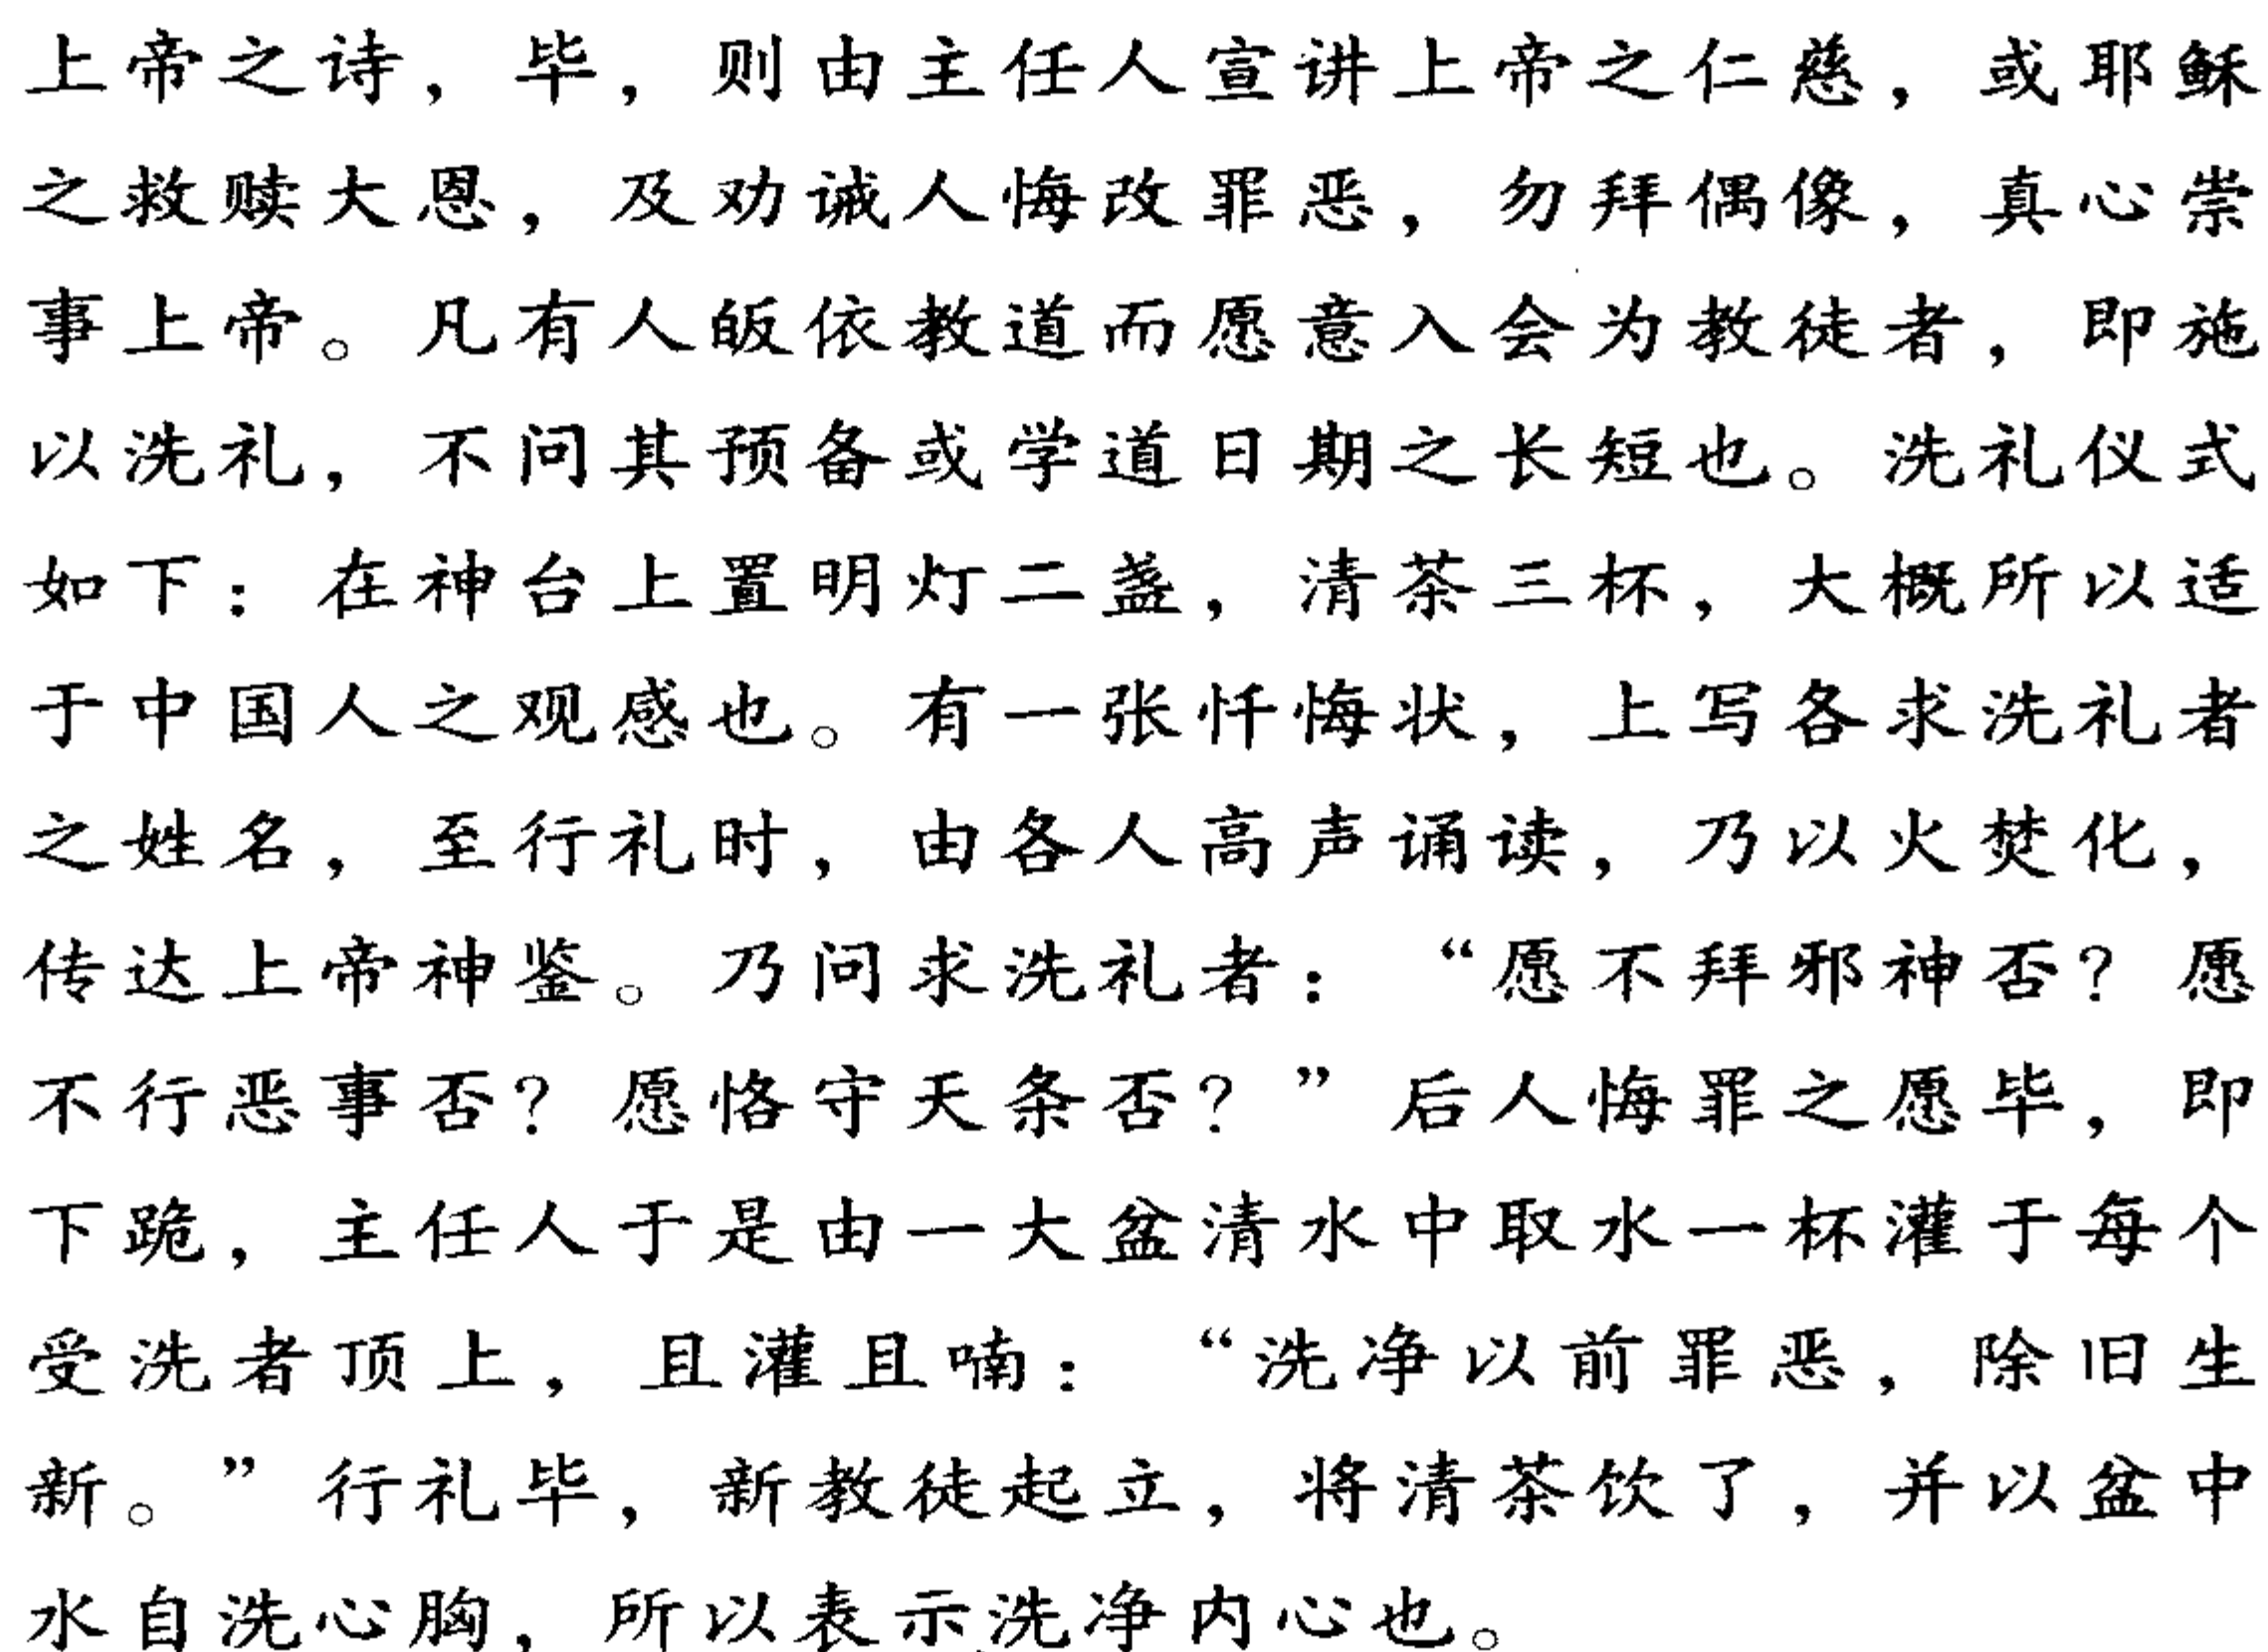 上帝之诗，毕，则由主任人宣讲上帝之仁慈，或耶稣
之救赎大恩，及劝诫人悔改罪恶，勿拜偶像，真心崇
事上帝。凡有人皈依教道而愿意入会为教徒者，即施
以洗礼，不问其预备或学道日期之长短也。洗礼仪式
如下：在神台上置明灯二盏，清茶三杯，大概所以适
于中国人之观感也。有一张忏悔状，上写各求洗礼者
之姓名，至行礼时，由各人高声诵读，乃以火焚化，
传达上帝神鉴。乃问求洗礼者：“愿不拜邪神否？愿
不行恶事否？愿恪守天条否？”后人悔罪之愿毕，即
下跪，主任人于是由一大盆清水中取水一杯灌于每个
受洗者顶上，且灌且喃：“洗净以前罪恶，除旧生
新。”行礼毕，新教徒起立，将清茶饮了，并以盆中
水自洗心胸，所以表示洗净内心也。